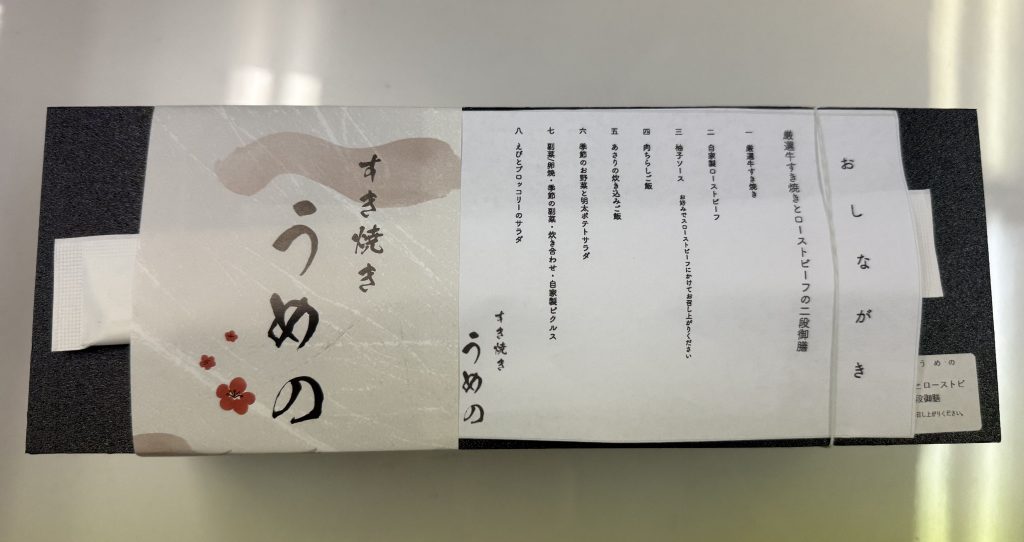 おしながき
厳選牛すき焼きとローストビーフの二段御膳
一 厳選牛すき焼き
二 自家製ローストビーフ
三 柚子ソース お好みでスローストビーフにかけてお召し上がりください
四 肉ちらしご飯
五 あさりの炊き込みご飯
六 季節のお野菜と明太ポテトサラダ
七 副菜/卵焼・季節の副菜・炊き合わせ・自家製ピクルス
八 えびとブロッコリーのサラダ
すき焼き
うめの
すき焼き
うめの
うめの
とローストビ
段御膳
召し上がりください。